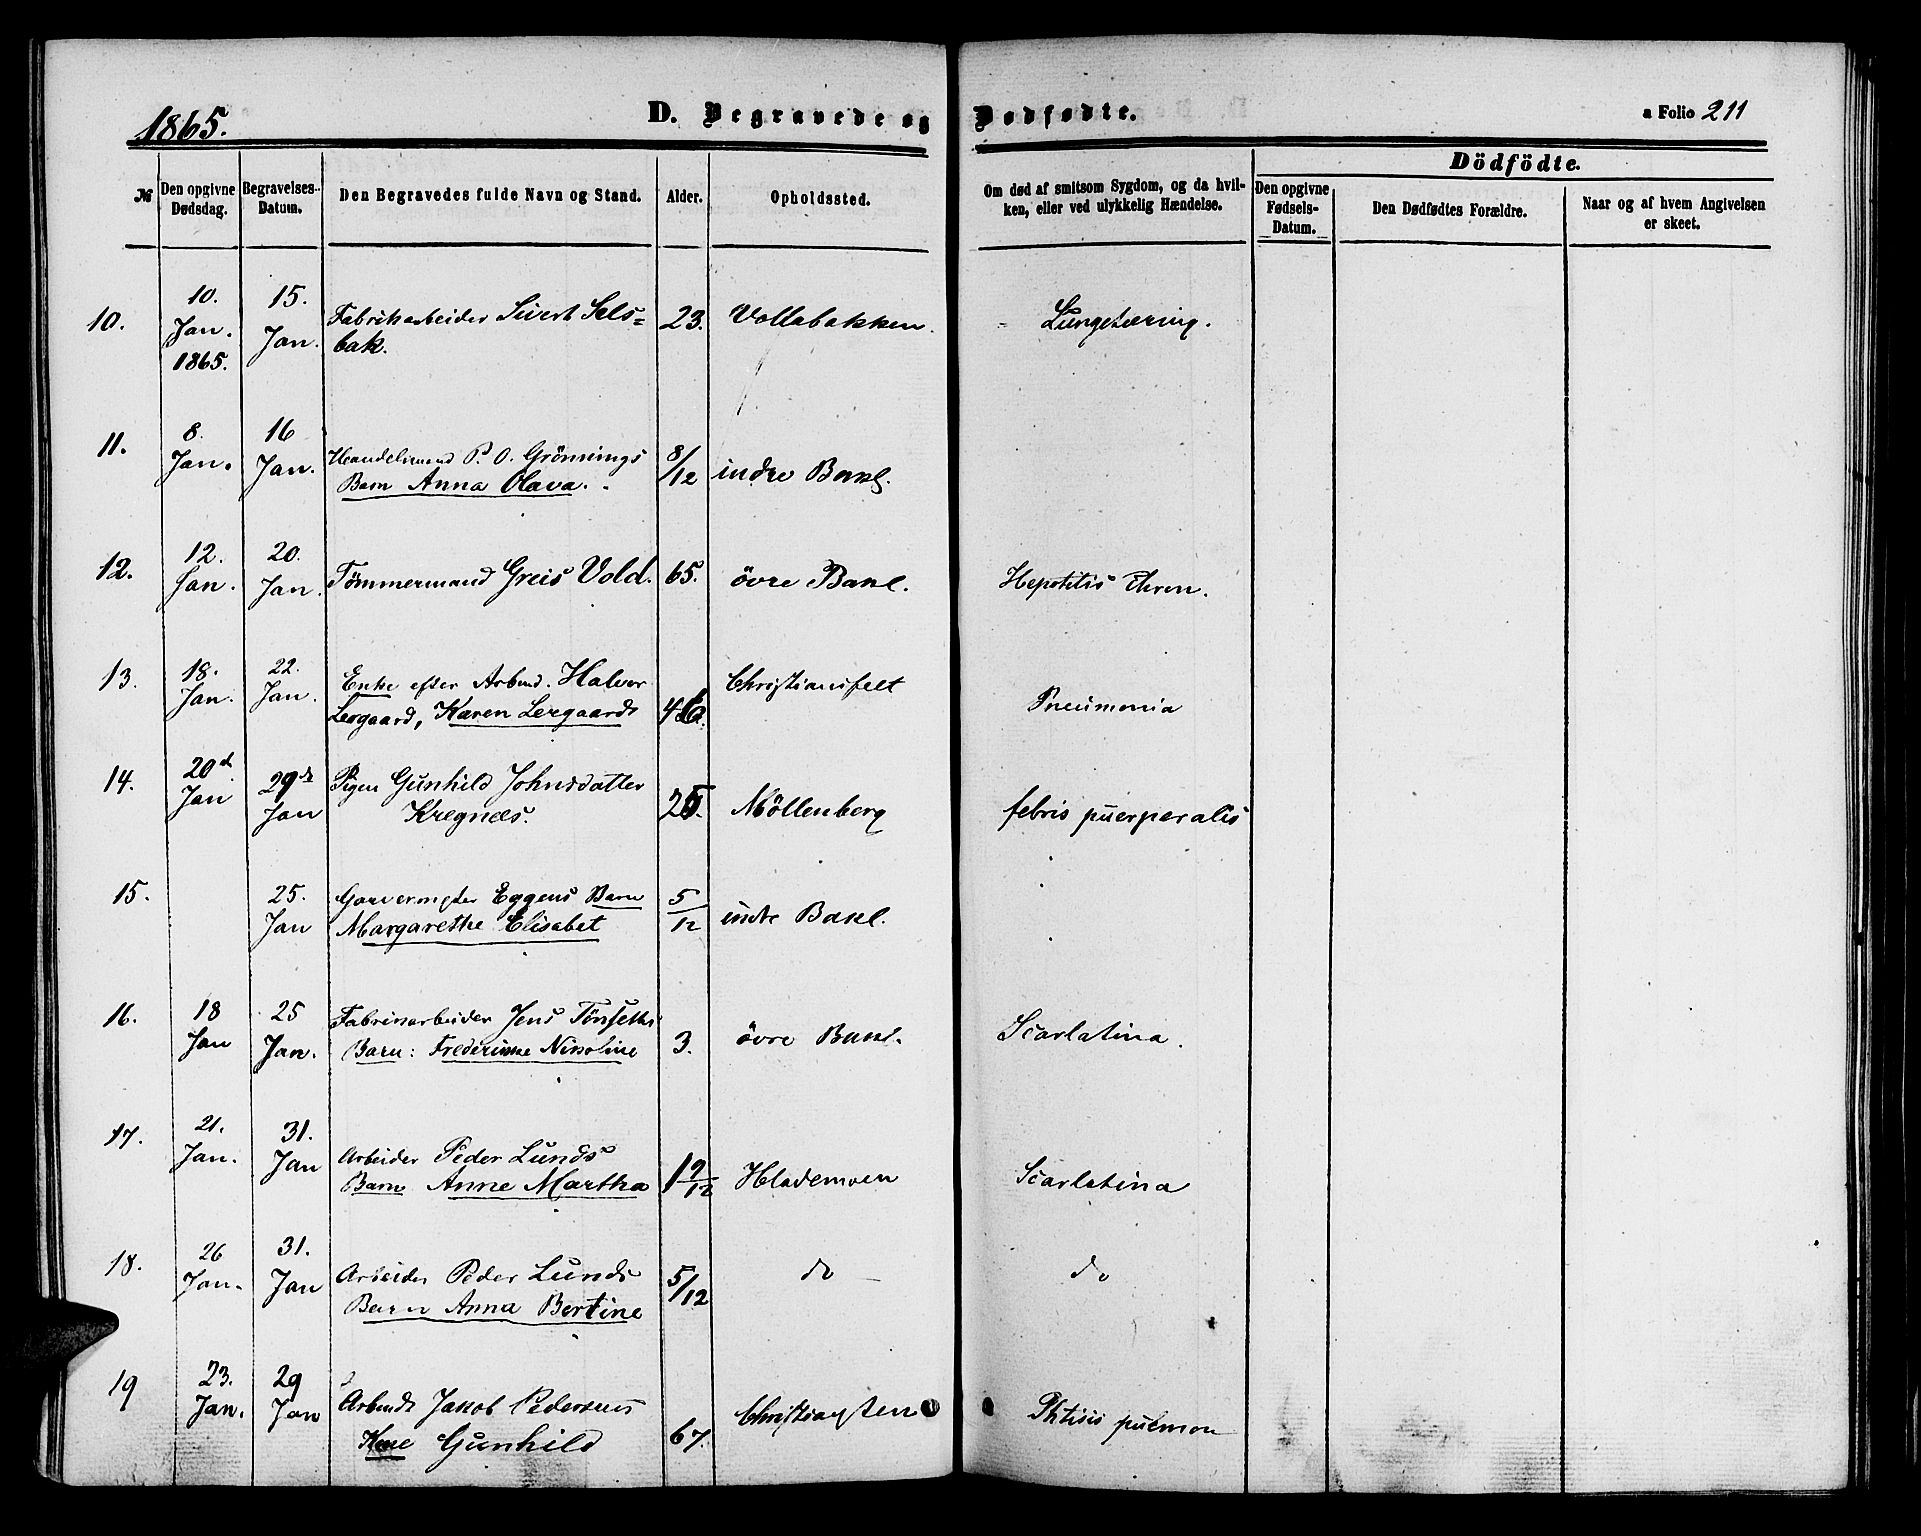 1865.
D. Begravede og Dødfødte.
a Folio 211
№
Den opgivne Dødsdag.
Begravelses-Datum.
Den Begravedes fulde Navn og Stand.
Alder.
Opholdssted.
Om død af smitsom Sygdom, og da hvil-
ken, eller ved ulykkelig Hændelse.
Dödfödte.
Den opgivne Fødsels-Datum.
Den Dødfødtes Forældre.
Naar og af hvem Angivelsen
er skeet.
10. 10. Jan. 1865. 15. Jan. Fabrikarbeider Sivert Sels=
bak. 23. Vollabakken. Lungetæring.
11. 8. Jan. 16 Jan. Handelsmand P. O. Grönnings
Barn Anna Olava. 8/12 indre Bakl.
12. 12. Jan. 20. Jan. Tømmermand Greis Vold. 65. övre Bakl. Hepatitis Chron.
13. 18. Jan. 22. Jan. Enke efter Arbmd. Halvor
Lergaard, Karen Lergaards 46. Christiansfelt Pneumonia
14. 20d. Jan 29de Jan Pigen Gunhild Johnsdatter
Kregnæs. 25. Möllenberg febris puerperalis
15. 25. Jan Garvermester Eggens Barn
Margarethe Elisabet 5/12 indre Bakl.
16. 18 Jan 25 Jan. Fabrikarbeider Jens Tönseths
Barn: Frederikke Nikoline 3. övre Bakl. Scarlatina.
17. 21. Jan. 31. Jan Arbeider Peder Lunds
Barn Anne Martha 1 9/12 Hlademoen Scarlatina
18. 26 Jan. 31. Jan Arbeider Peder Lunds
Barn Anna Bertine 5/12 do do
19 23. Jan. 29 Jan Arbmds Jakob Pedersens
Kone Gunhild 67. Christiansten Phtisis pulmon